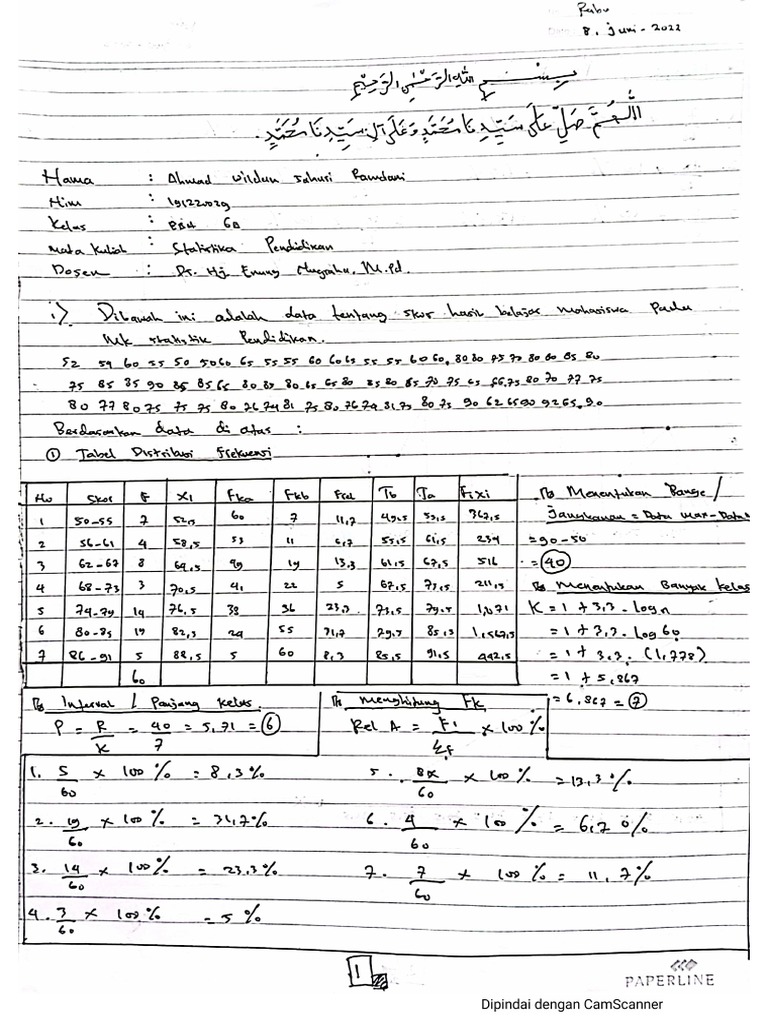 Rabu
8, Juni - 2022
بِسْــــمِ اللهِ الرَّحْمٰنِ الرَّحِيْمِ
اَللّٰهُمَّ صَلِّ عَلَى سَيِّدِنَا مُحَمَّدٍ وَعَلَى آلِ سَيِّدِنَا مُحَمَّدٍ.
Nama : Ahmad Wildun Jahuri Ramdani
Nim : 191220029
Kelas : 6D
Mata Kuliah : Statistika Pendidikan
Dosen : Dr. Hj. Enung Nugraha, M.Pd.
1) Dibawah ini adalah data tentang skor hasil belajar mahasiswa Pada
Mk statistik Pendidikan.
52 59 60 55 50 50 60 65 55 55 60 60 65 55 55 60 60, 80 80 75 73 80 80 85 80
75 85 85 90 85 85 65 80 85 80 65 65 80 85 80 85 70 75 65 75 80 70 77 75
80 77 80 75 75 75 80 76 74 81 75 80 76 74 81 75 80 75 90 62 65 90 92 65, 90
Berdasarkan data di atas :
① Tabel Distribusi Frekuensi
No Skor F Xi Fka Fkb Frel Tb Ta Fixi
1 50-55 7 52,5 60 7 11,7 49,5 55,5 367,5
2 56-61 4 58,5 53 11 6,7 55,5 61,5 234
3 62-67 8 64,5 49 19 13,3 61,5 67,5 516
4 68-73 3 70,5 41 22 5 67,5 73,5 211,5
5 74-79 14 76,5 38 36 23,3 73,5 79,5 1,071
6 80-85 19 82,5 24 55 31,7 79,5 85,5 1,567,5
7 86-91 5 88,5 5 60 8,3 85,5 91,5 442,5
60
Menentukan Range /
Jangkauan = Data max - Data
= 90 - 50
= 40
Menentukan Banyak Kelas
K = 1 + 3,3 . log n
= 1 + 3,3 . log 60
= 1 + 3,3 . (1,778)
= 1 + 5,867
= 6,867 = 7
Interval / Panjang Kelas.
P = R/K = 40/7 = 5,71 = 6
Menghitung Fk
Rel A = Fi/Σf x 100 %
1. 5/60 x 100 % = 8,3 %
2. 19/60 x 100 % = 31,7 %
3. 14/60 x 100 % = 23,3 %
4. 3/60 x 100 % = 5 %
5. 8/60 x 100 % = 13,3 %
6. 4/60 x 100 % = 6,7 %
7. 7/60 x 100 % = 11,7 %
1
PAPERLINE
Dipindai dengan CamScanner